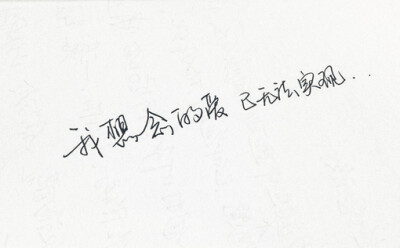 我想念的爱已无法实现...